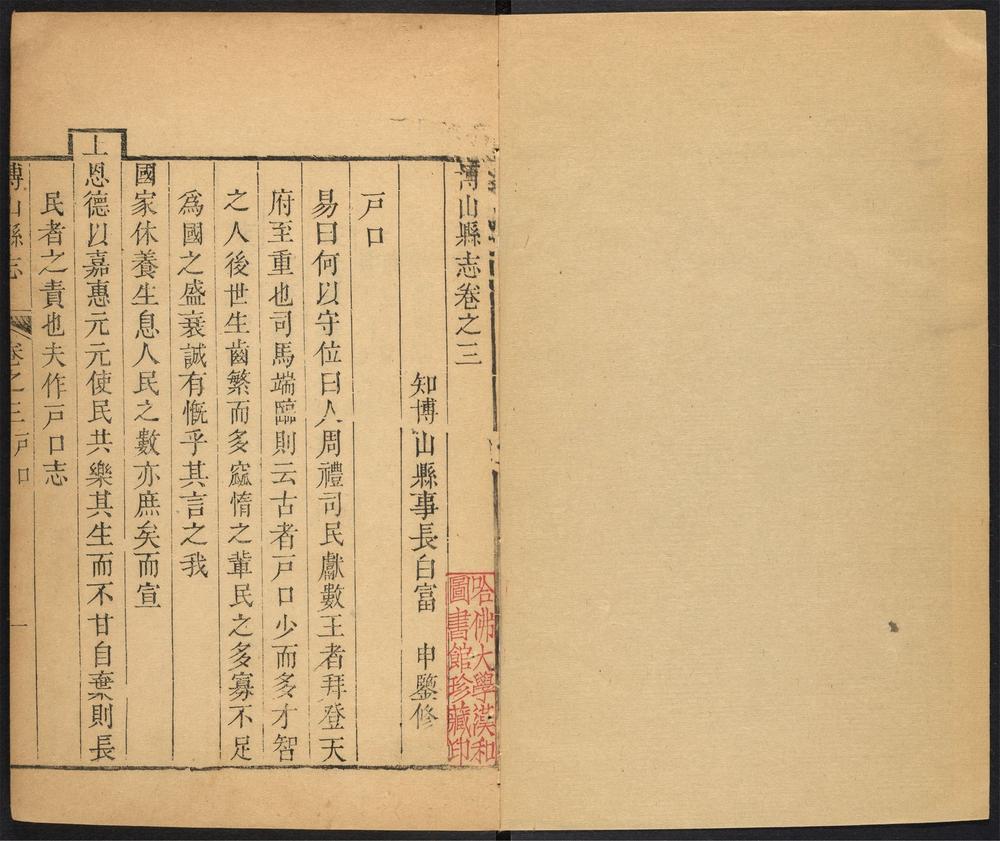 博山縣志卷之三
知博山縣事長白富　申鑒修
戶口
易曰何以守位曰人周禮司民獻數王者拜登天
府至重也司馬端臨則云古者戶口少而多才智
之人後世生齒繁而多窳惰之輩民之多寡不足
為國之盛衰誠有慨乎其言之我
國家休養生息人民之數亦庶矣而宣
上恩德以嘉惠元元使民共樂其生而不甘自棄則長
民者之責也夫作戶口志
博山縣志　卷之三戶口　一
哈佛大學漢和
圖書館珍藏印